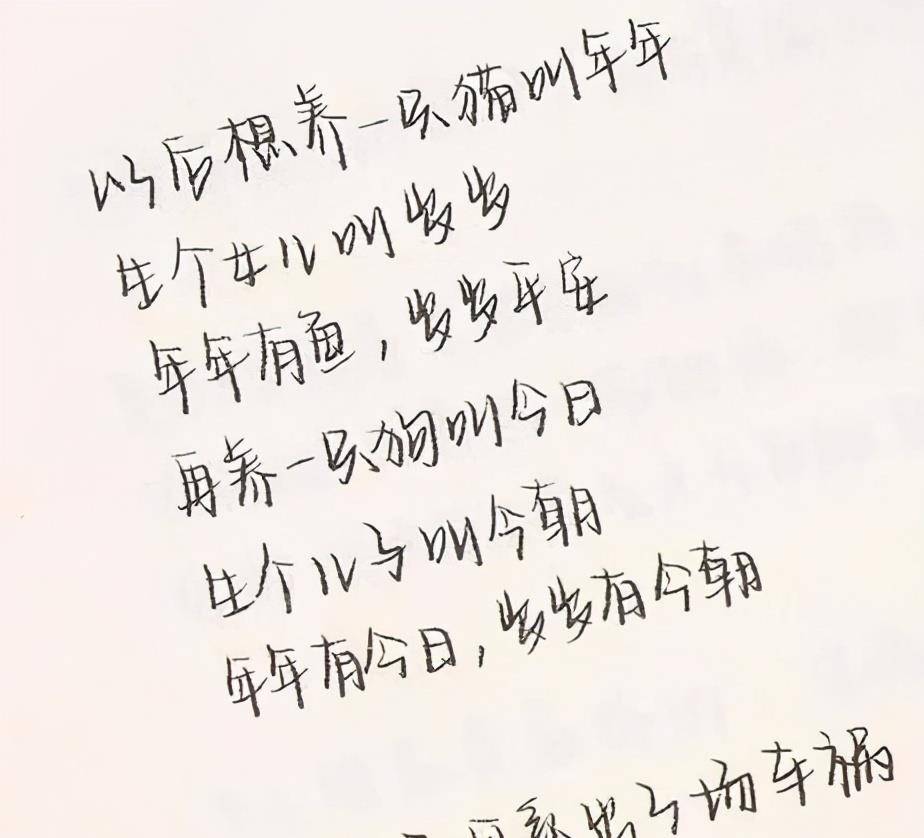 以后想养一只猫叫年年
生个女儿叫岁岁
年年有鱼，岁岁平安
再养一只狗叫今日
生个儿子叫今朝
年年有今日，岁岁有今朝
出了场车祸